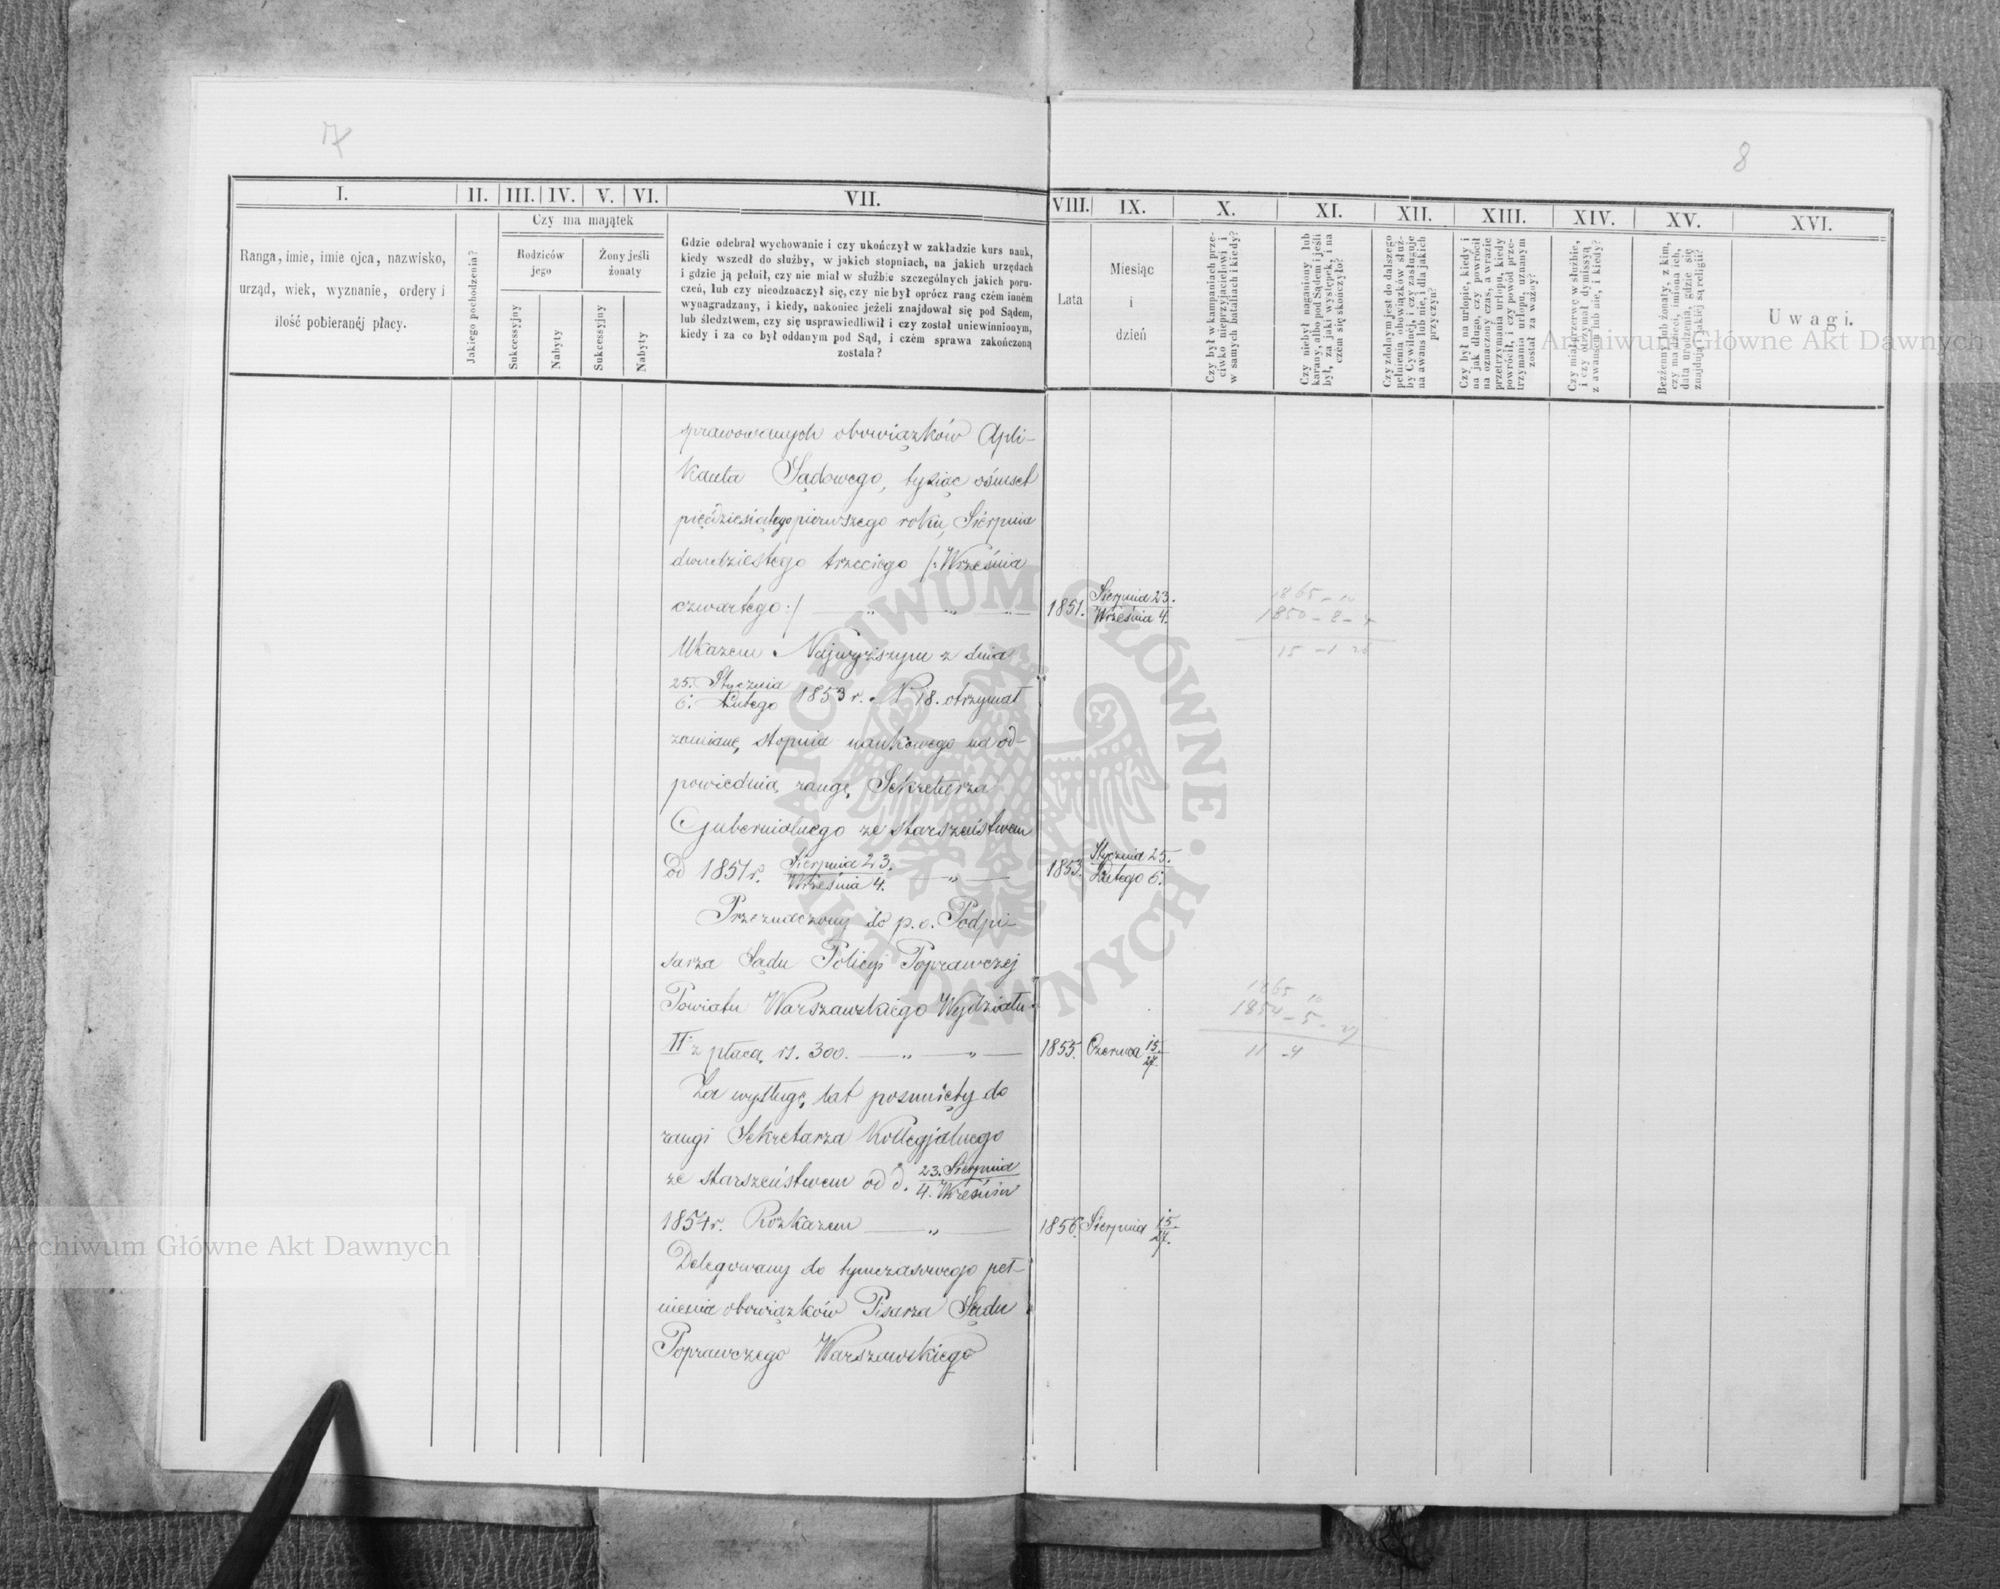 7
8
I. II. III. IV. V. VI. VII. VIII. IX. X. XI. XII. XIII. XIV. XV. XVI.
Ranga, imie, imie ojca, nazwisko,
urząd, wiek, wyznanie, ordery i
ilość pobieranéj płacy.
Jakiego pochodzenia?
Czy ma majątek
Rodziców
jego
Żony jeśli
żonaty
Sukcessyjny
Nabyty
Sukcessyjny
Nabyty
Gdzie odebrał wychowanie i czy ukończył w zakładzie kurs nauk,
kiedy wszedł do służby, w jakich stopniach, na jakich urzędach
i gdzie ją pełnił, czy nie miał w służbie szczególnych jakich poru-
czeń, lub czy nieodznaczył się, czy nie był oprócz rang czém inném
wynagradzany, i kiedy, nakoniec jeżeli znajdował się pod Sądem,
lub śledztwem, czy się usprawiedliwił i czy został uniewinnionym,
kiedy i za co był oddanym pod Sąd, i czém sprawa zakończoną
została?
Lata
Miesiąc
i
dzień
Czy był w kampaniach prze-
ciwko nieprzyjacielowi i
w samych bataliach i kiedy?
Czy niebył naganiony lub
karany, albo pod Sądem i jeśli
był, za jaki występek, i na
czém się skończyło?
Czy zdolnym jest do dalszego
pełnienia obowiązków służ-
by Cywilnej, i czy zasługuje
na awans lub nie, i dla jakich
przyczyn?
Czy był na urlopie, kiedy i
na jak długo, czy powrócił
na oznaczony czas, a w razie
przetrzymania urlopu, kiedy
powrócił, i czy powód prze-
trzymania urlopu, uznanym
został za ważny?
Czy miał przerwę w służbie,
i czy otrzymał dymissyą
z awansem lub nie, i kiedy?
Bezżenny lub żonaty, z kim,
czy ma dzieci, imiona ich,
data urodzenia, gdzie się
znajdują i jakiéj są religii?
Uwagi.
sprawowanych obowiązków Apli-
kanta Sądowego, tysiąc ośmset
pięćdziesiątego pierwszego roku, Sierpnia
dwudziestego trzeciego /: Września
czwartego :/ — „ — „ — 1851. Sierpnia 23. / Września 4.
Ukazem Najwyższym z dnia
25. Stycznia / 6. Lutego 1853 r. N 18. otrzymał
zamianę, stopnia naukowego na od-
powiednią rangę, Sekretarza
Gubernialnego ze starszeństwem
od 1851 r. Sierpnia 23. / Września 4. — „ — 1853. Stycznia 25. / Lutego 6.
Przeznaczony do p. o. Podpi-
sarza Sądu Policyi Poprawczej
Powiatu Warszawskiego Wydziału
II z płacą rs. 300. — „ — „ — 1855. Czerwca 15. / 27.
Za wysługę lat posunięty do
rangi Sekretarza Kollegjalnego
ze starszeństwem od d. 23. Sierpnia / 4. Września
1854 r. Rozkazem — „ — 1856. Sierpnia 15. / 27.
Delegowany do tymczasowego peł-
nienia obowiązków Pisarza Sądu
Poprawczego Warszawskiego
1865 - 10
1850 - 8 -
15 - 1
1865 10
1854 - 5 -
11 - 4
ARCHIWUM GŁÓWNE AKT DAWNYCH
Archiwum Główne Akt Dawnych
Archiwum Główne Akt Dawnych